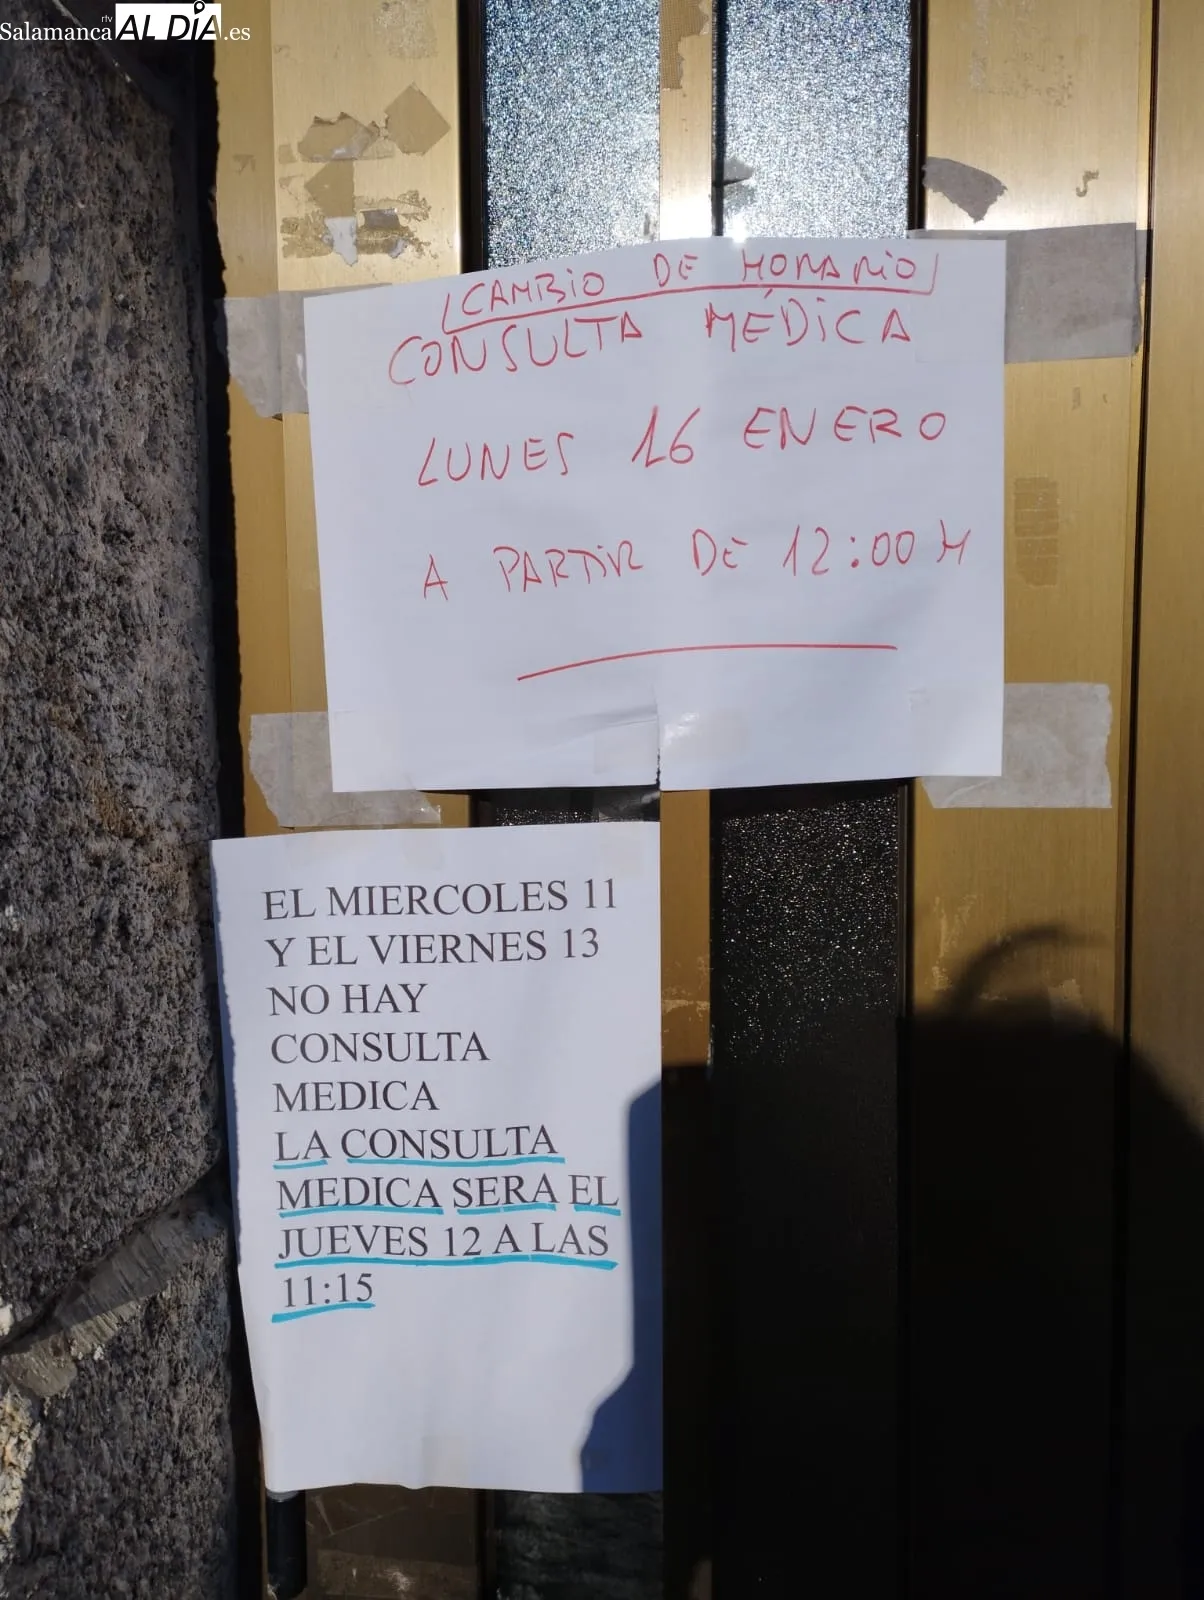 Salamanca rtv AL DÍA.es
CAMBIO DE HORARIO
CONSULTA MÉDICA
LUNES 16 ENERO
A PARTIR DE 12:00 H
EL MIERCOLES 11
Y EL VIERNES 13
NO HAY
CONSULTA
MEDICA
LA CONSULTA
MEDICA SERA EL
JUEVES 12 A LAS
11:15